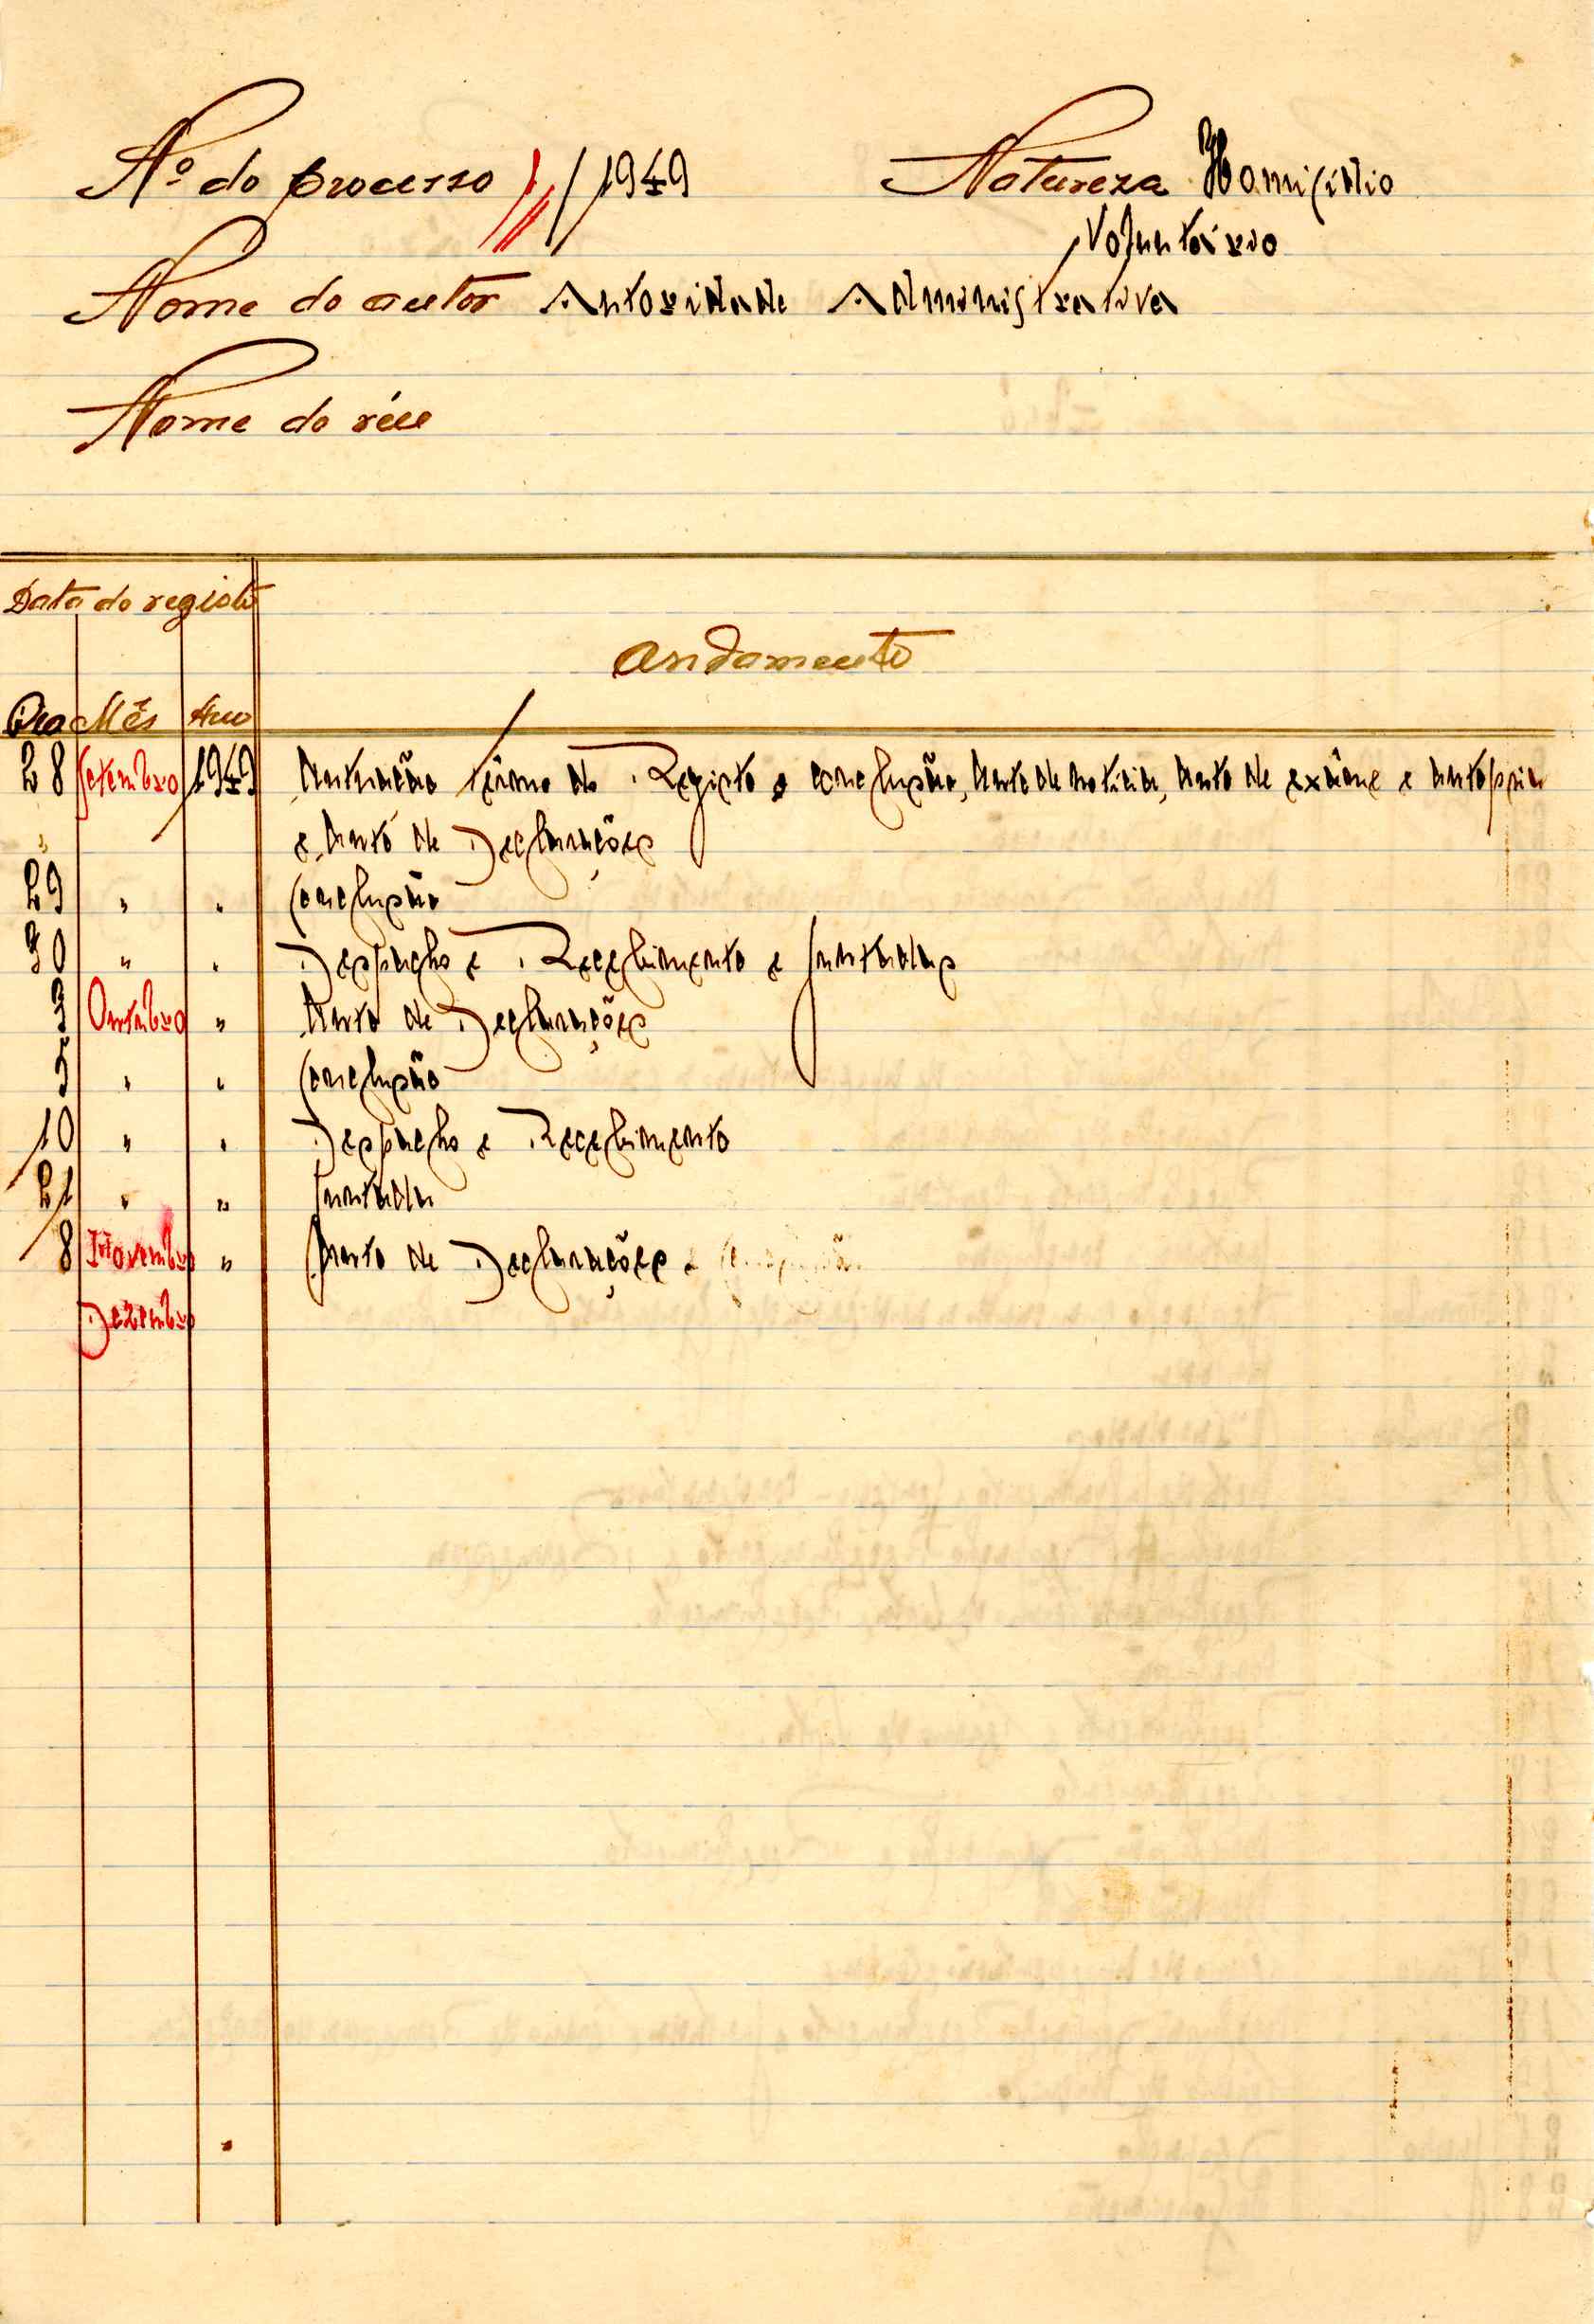 Nº do processo 11/1949 Natureza Homicídio
Voluntário
Nome do autor Autoridade Administrativa
Nome do réu
Data do registo
Andamento
Dia Mês Ano
28 Setembro 1949 Autuação têrmo de Registo e conclusão, Auto de notícia, Auto de exâme e autopsia
" e Auto de Declarações
29 " " Conclusão
30 " " Despacho e Recebimento e Juntadas
3 Outubro " Auto de Declarações
5 " " Conclusão
10 " " Despacho e Recebimento
21 " " Juntada
8 Novembro " Auto de Declarações e
Dezembro